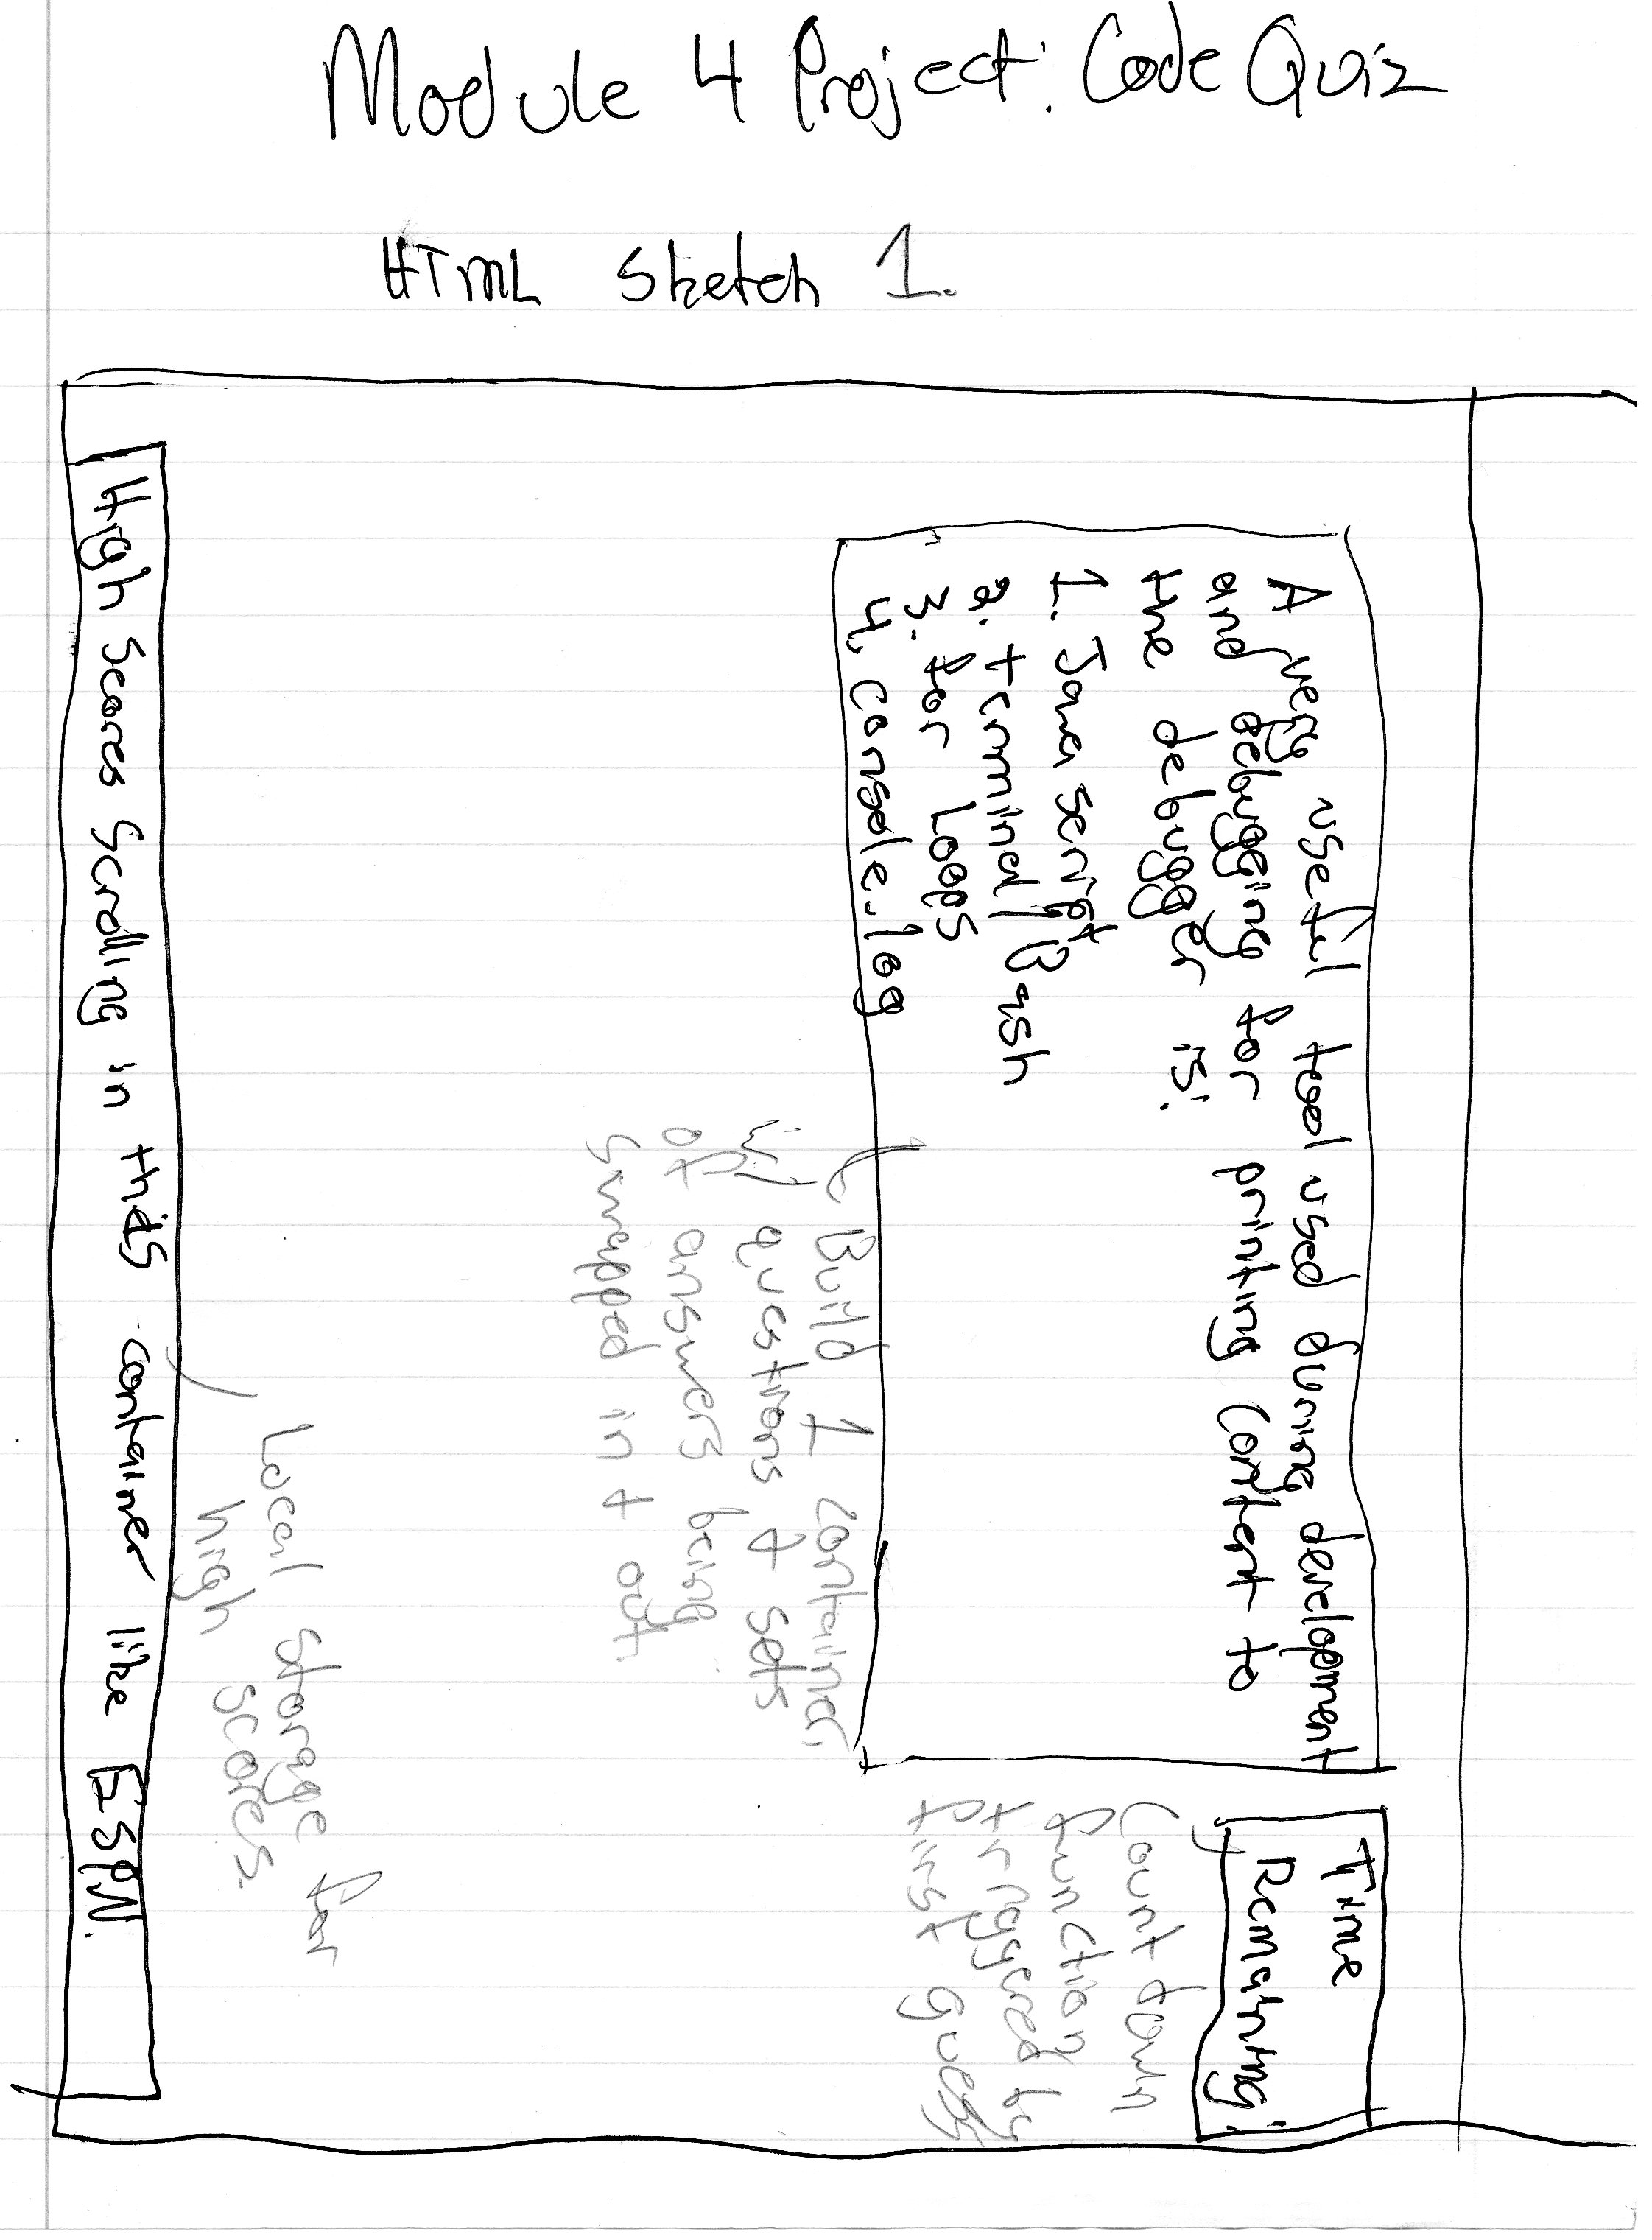 Module 4 Project: Code Quiz
HTML Sketch 1.
A very useful tool used during development
and debugging for printing content to
the debugger is:
1. Java script
2. terminal / Bash
3. for Loops
4. console.log
Time
Remaining:
Count down
function
triggered by
first guess
Build 1 container,
w/ questions & sets
of answers being
swapped in & out.
Local Storage for
high scores.
High Scores Scrolling in this container like ESPN.